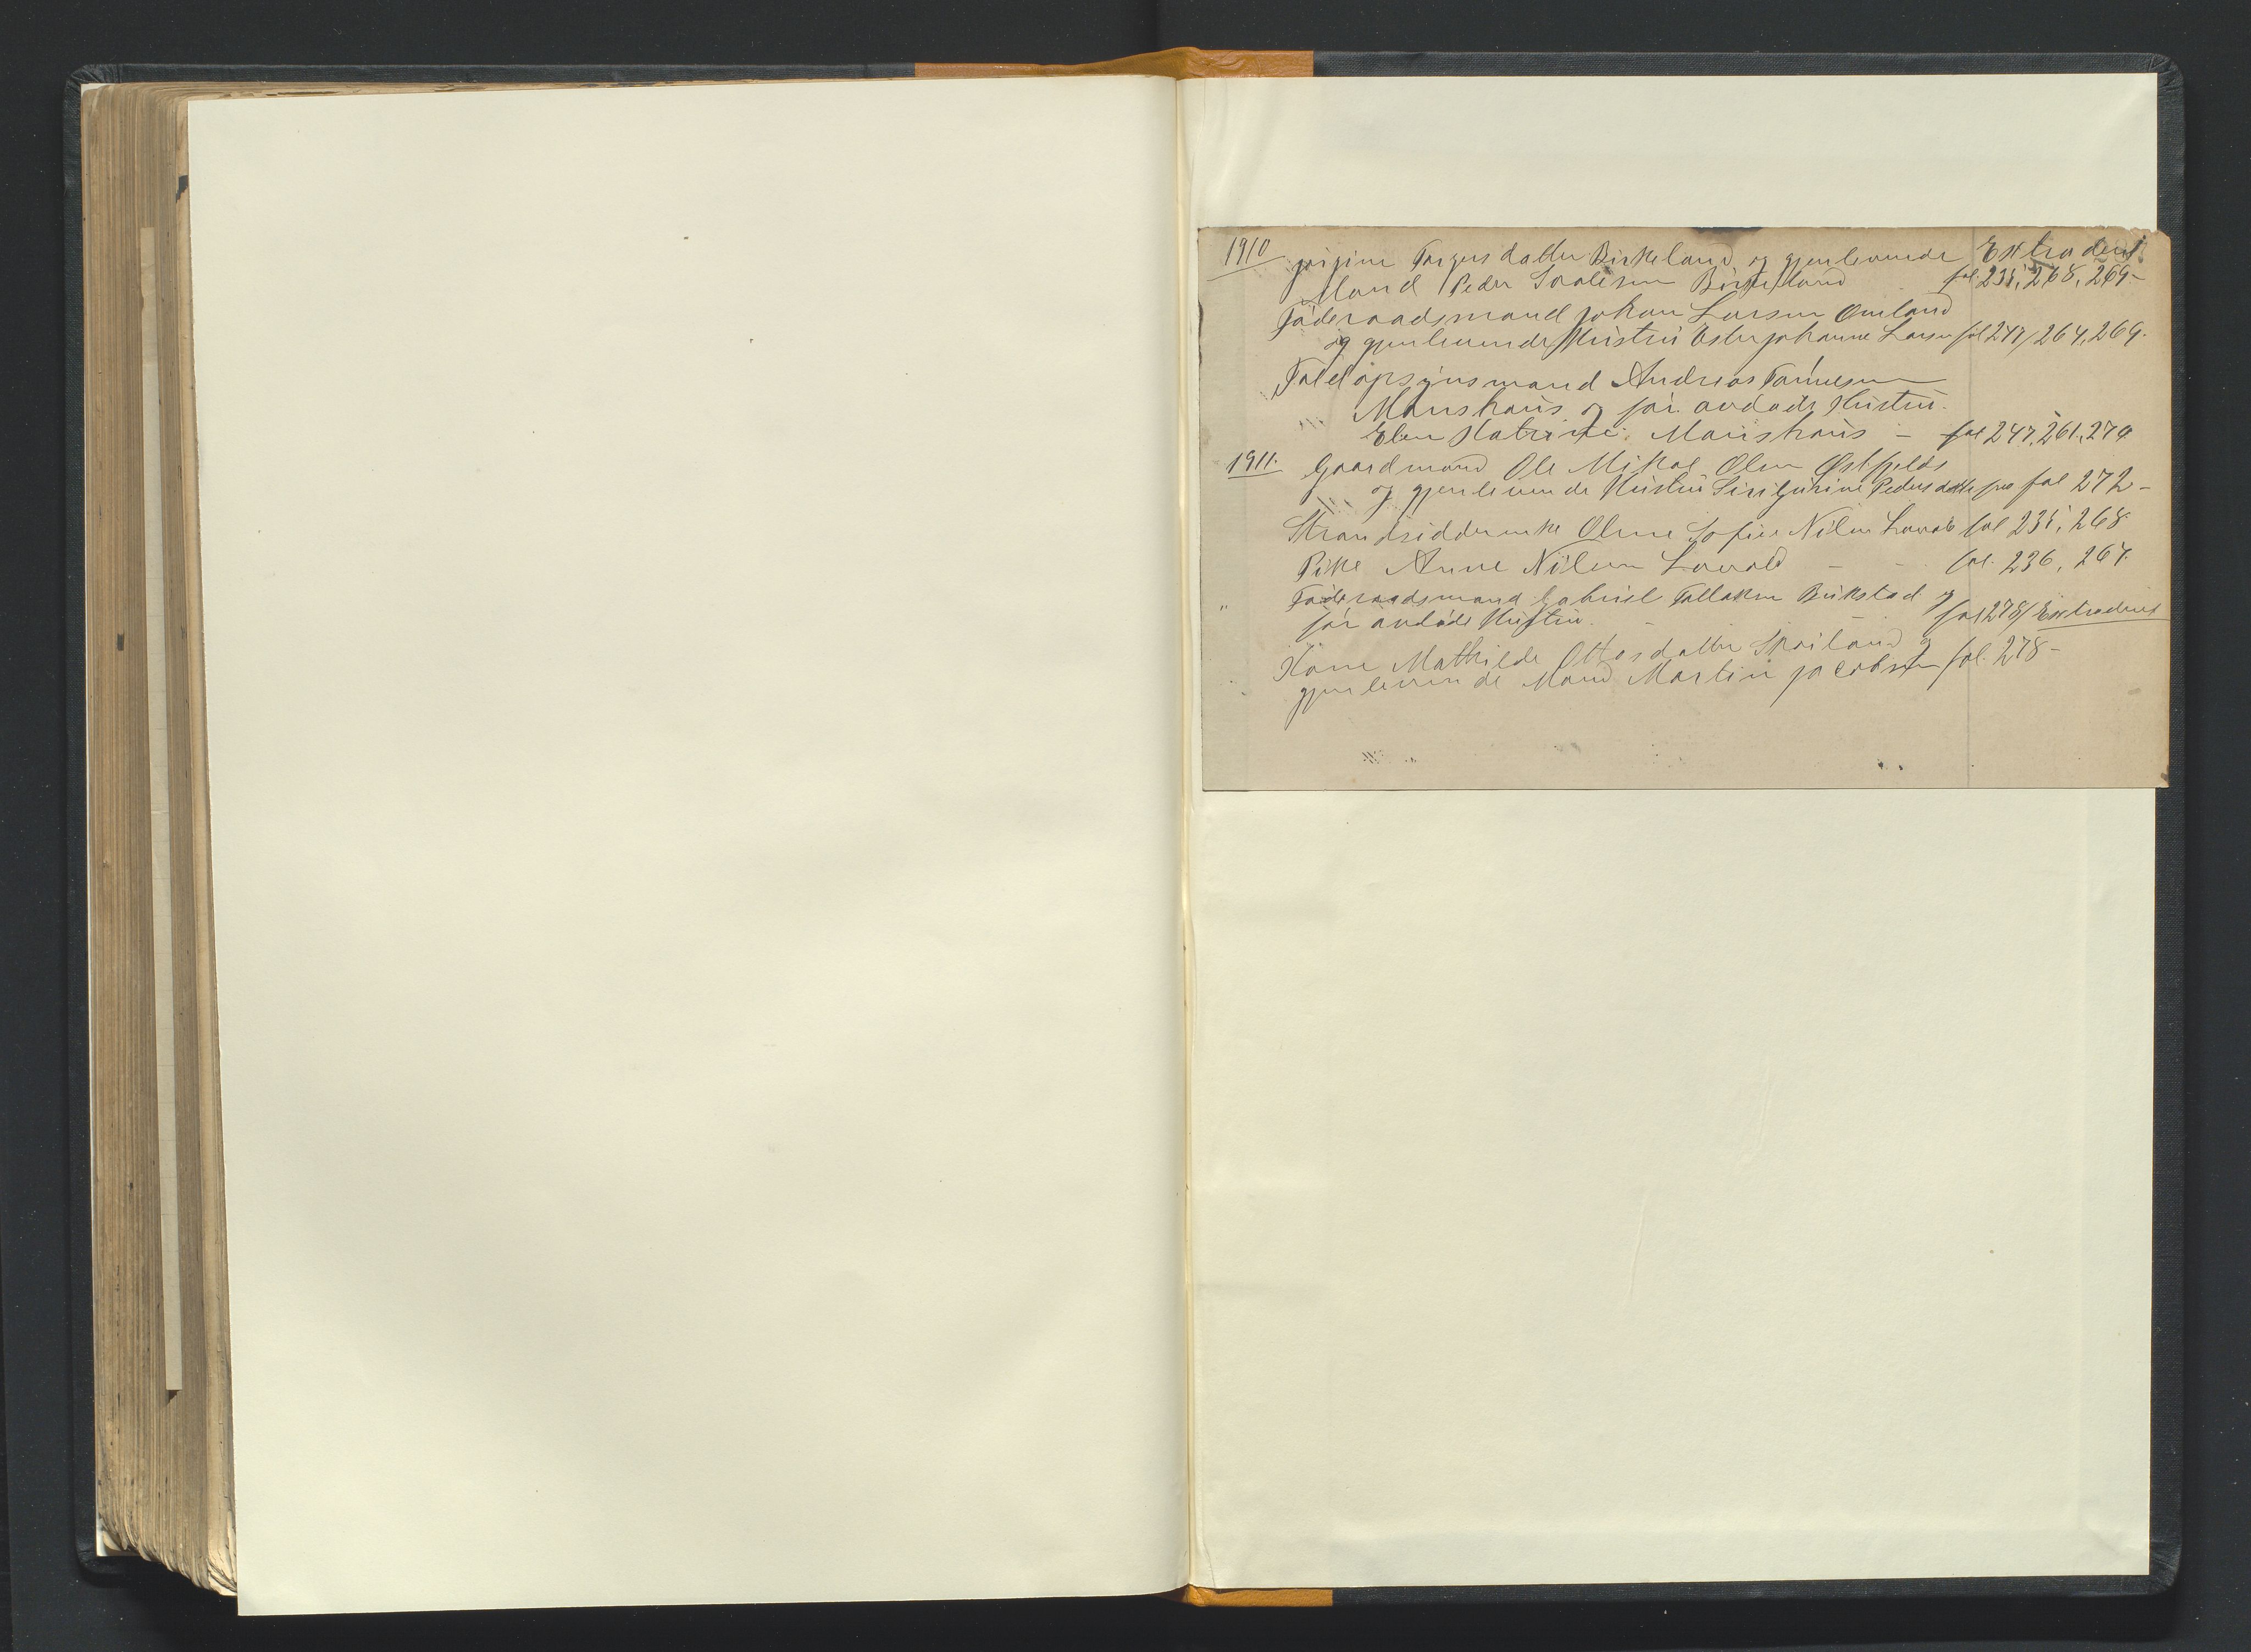 1910 Jørgine Torgersdatter Birkeland og gjenlevende Extraderet
Mand Peder Birkeland fol. 235, 268, 269 -
Føderaadsmand Johan Larsen Omland
og gjenlevende Hustru Ester Johanne Larsen fol 247/ 264, 269.
Toldopsynsmand Andreas Tønnesen
Maushaus og før avdøde Hustru
Elen Katrine Maushaus - fol 247, 261, 270
1911. Gaardmand Ole Mikal Olsen Østhjelds
og gjenlevende Hustru Siri Gurine Pedersdatter fol 272 -
Strandsidderenke Olene Sofie Nilsen Lovold fol 235, 268
Pike Anne Nilsen Lovold - - fol. 236, 267.
Føderaadsmand Gabriel Tallaksen Birkstad og
før avdøde Hustru. - fol 278/ Extraderet
Kone Mathilde Ottosdatter Skoiland og
gjenlevende Mand Martin Jacobsen fol. 278 -